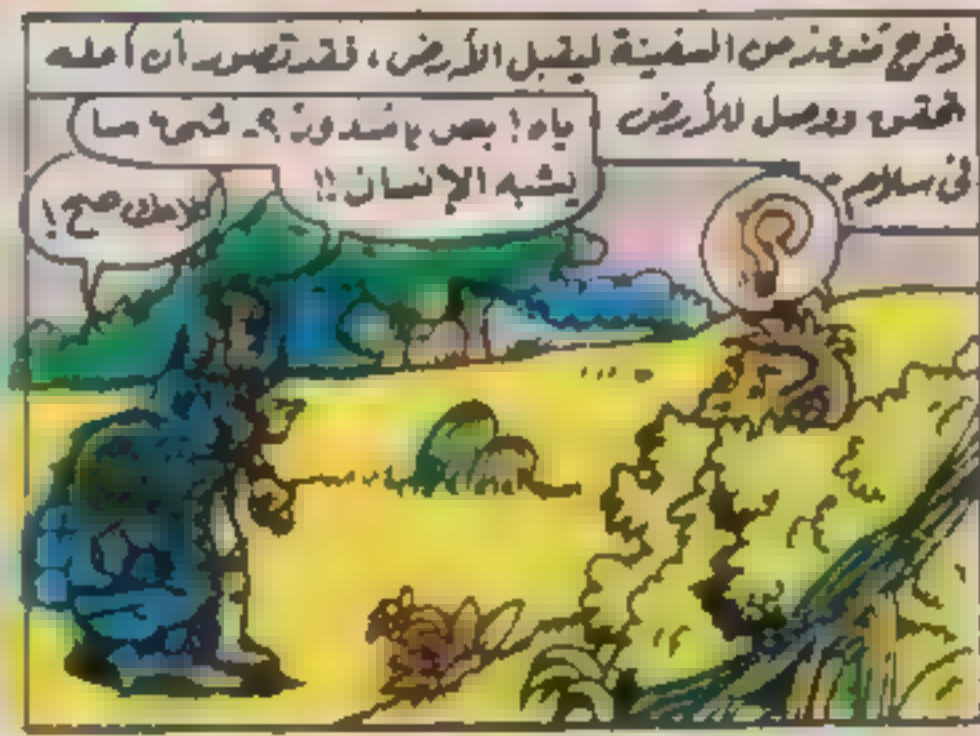 وخرج شندوز من السفينة ليقبل الأرض ، فقد تصور أن أمله
تحقق ووصل للأرض
فى سلام -
ياه ! بص يا شندوز ؟ شىء ما
يشبه الإنسان !!
صح !
؟